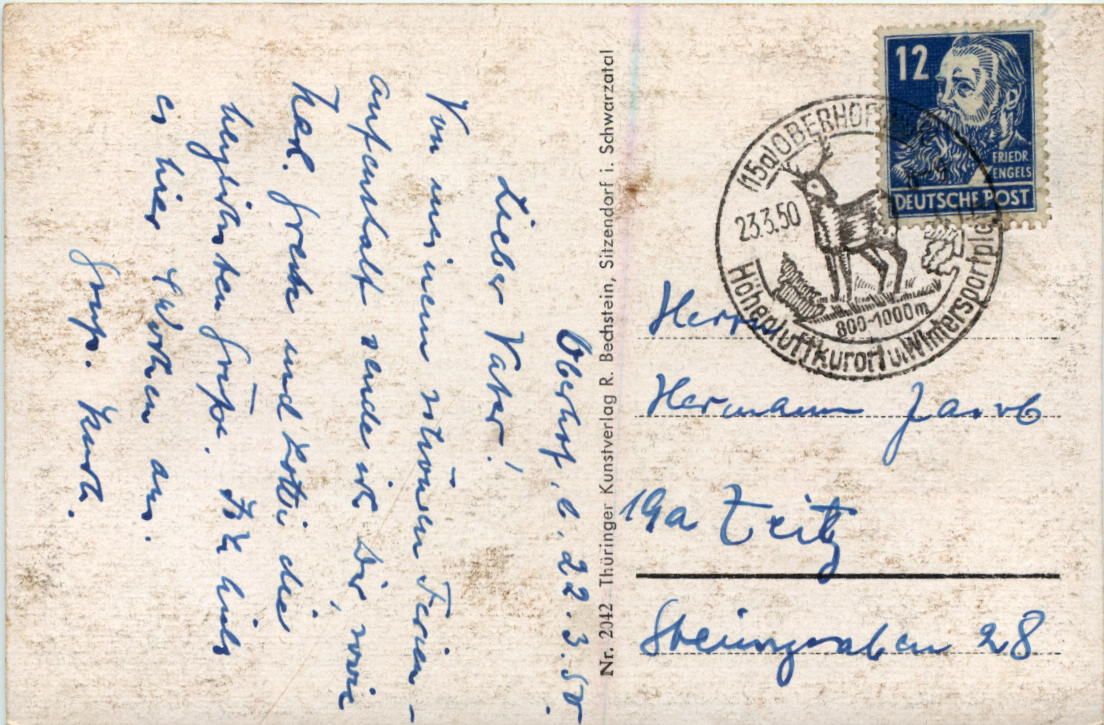 Oberhof, d. 22.3.50.
Lieber Vater!
Von meinem schönen Ferien-
aufenthalt sende ich Dir, wie
Grete und Lotti die
herzlichsten Grüße.
es hier 4 Wochen aus.
Gruß. Kurt.
Nr. 2042 Thüringer Kunstverlag R. Bechstein, Sitzendorf i. Schwarzatal
12
FRIEDR.
ENGELS
DEUTSCHE POST
(15a) OBERHOF
23.3.50
800-1000m
Höhenluftkurort u. Wintersportplatz
Herrn
Hermann Jacob
19a Zeitz
Steinsgraben 28